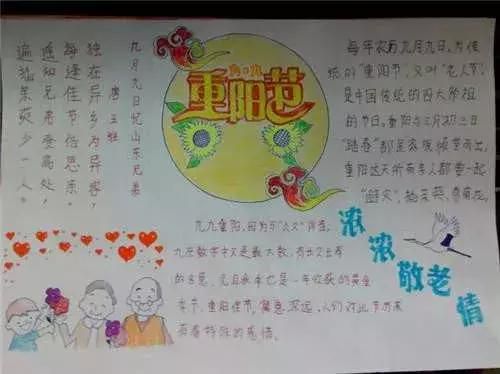 九月九日忆山东兄弟
唐 王维
独在异乡为异客，
每逢佳节倍思亲。
遥知兄弟登高处，
遍插茱萸少一人。
九九
重阳节
每年农历九月九日，为传
统的"重阳节"，又叫"老人节"。
是中国传统的四大祭祖
的节日。重阳与三月初三日
"踏春"都是家族倾室而出，
重阳这天所有亲人都要一起
"避灾"，插茱萸、赏菊花。
九九重阳，因为与"久久"同音，
九在数字中又是最大数，有长久长寿
的含意，况且秋季也是一年收获的黄金
季节，重阳佳节，寓意深远，人们对此节历来
有着特殊的感情。
浓浓敬老情